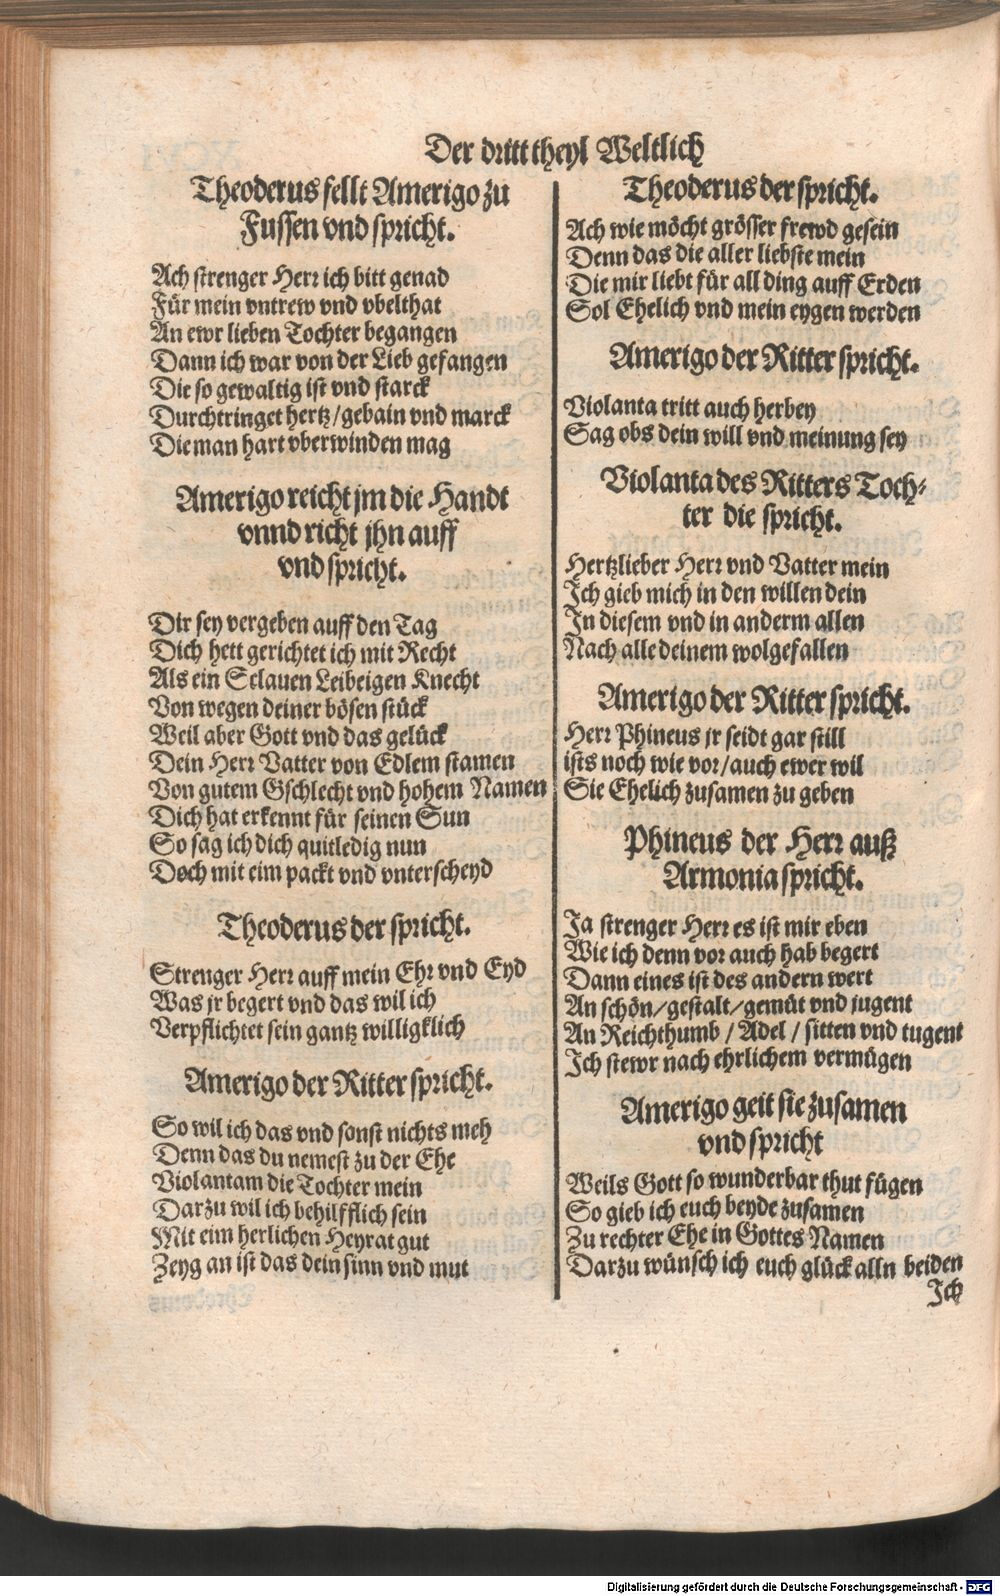 Der dritt theyl Weltlich
Theoderus fellt Amerigo zu
Fussen vnd spricht.
Ach strenger Herr ich bitt genad
Für mein vntrew vnd vbelthat
An ewr lieben Tochter begangen
Dann ich war von der Lieb gefangen
Die so gewaltig ist vnd starck
Durchtringet hertz/gebain vnd marck
Die man hart vberwinden mag
Amerigo reicht jm die Handt
vnnd richt jhn auff
vnd spricht.
Dir sey vergeben auff den Tag
Dich hett gerichtet ich mit Recht
Als ein Sclauen Leibeigen Knecht
Von wegen deiner bösen stück
Weil aber Gott vnd das gelück
Dein Herr Vatter von Edlem stamen
Von gutem Gschlecht vnd hohem Namen
Dich hat erkennt für seinen Sun
So sag ich dich quitledig nun
Doch mit eim packt vnd vnterscheyd
Theoderus der spricht.
Strenger Herr auff mein Ehr vnd Eyd
Was jr begert vnd das wil ich
Verpflichtet sein gantz willigklich
Amerigo der Ritter spricht.
So wil ich das vnd sonst nichts meh
Denn das du nemest zu der Ehe
Violantam die Tochter mein
Darzu wil ich behilfflich sein
Mit eim herlichen Heyrat gut
Zeyg an ist das dein sinn vnd mut
Theoderus der spricht.
Ach wie möcht grösser frewd gesein
Denn das die aller liebste mein
Die mir liebt für all ding auff Erden
Sol Ehelich vnd mein eygen werden
Amerigo der Ritter spricht.
Violanta tritt auch herbey
Sag obs dein will vnd meinung sey
Violanta des Ritters Toch-
ter die spricht.
Hertzlieber Herr vnd Vatter mein
Ich gieb mich in den willen dein
In diesem vnd in anderm allen
Nach alle deinem wolgefallen
Amerigo der Ritter spricht.
Herr Phineus jr seidt gar still
ists noch wie vor/auch ewer wil
Sie Ehelich zusamen zu geben
Phineus der Herr auß
Armonia spricht.
Ja strenger Herr es ist mir eben
Wie ich denn vor auch hab begert
Dann eines ist des andern wert
An schön/gestalt/gemüt vnd jugent
An Reichthumb / Adel / sitten vnd tugent
Ich stewr nach ehrlichem vermügen
Amerigo geit sie zusamen
vnd spricht
Weils Gott so wunderbar thut fügen
So gieb ich euch beyde zusamen
Zu rechter Ehe in Gottes Namen
Darzu wünsch ich euch glück alln beiden
Ich
Digitalisierung gefördert durch die Deutsche Forschungsgemeinschaft - DFG